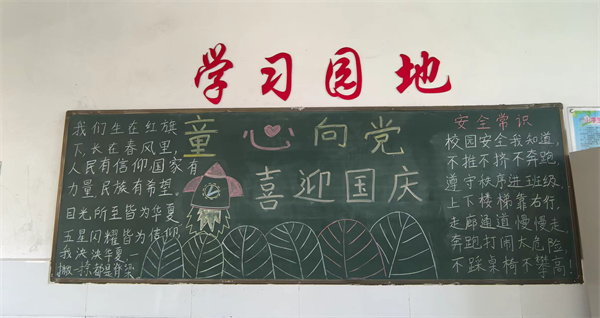 学习园地
我们生在红旗
下,长在春风里,
人民有信仰国家有
力量,民族有希望。
目光所至皆为华夏
五星闪耀皆为信仰
我泱泱华夏,一
撇一捺都是脊梁
童心向党
喜迎国庆
安全常识
校园安全我知道,
不推不挤不奔跑,
遵守秩序进班级,
上下楼梯靠右行,
走廊通道慢慢走,
奔跑打闹太危险,
不踩桌椅不攀高!